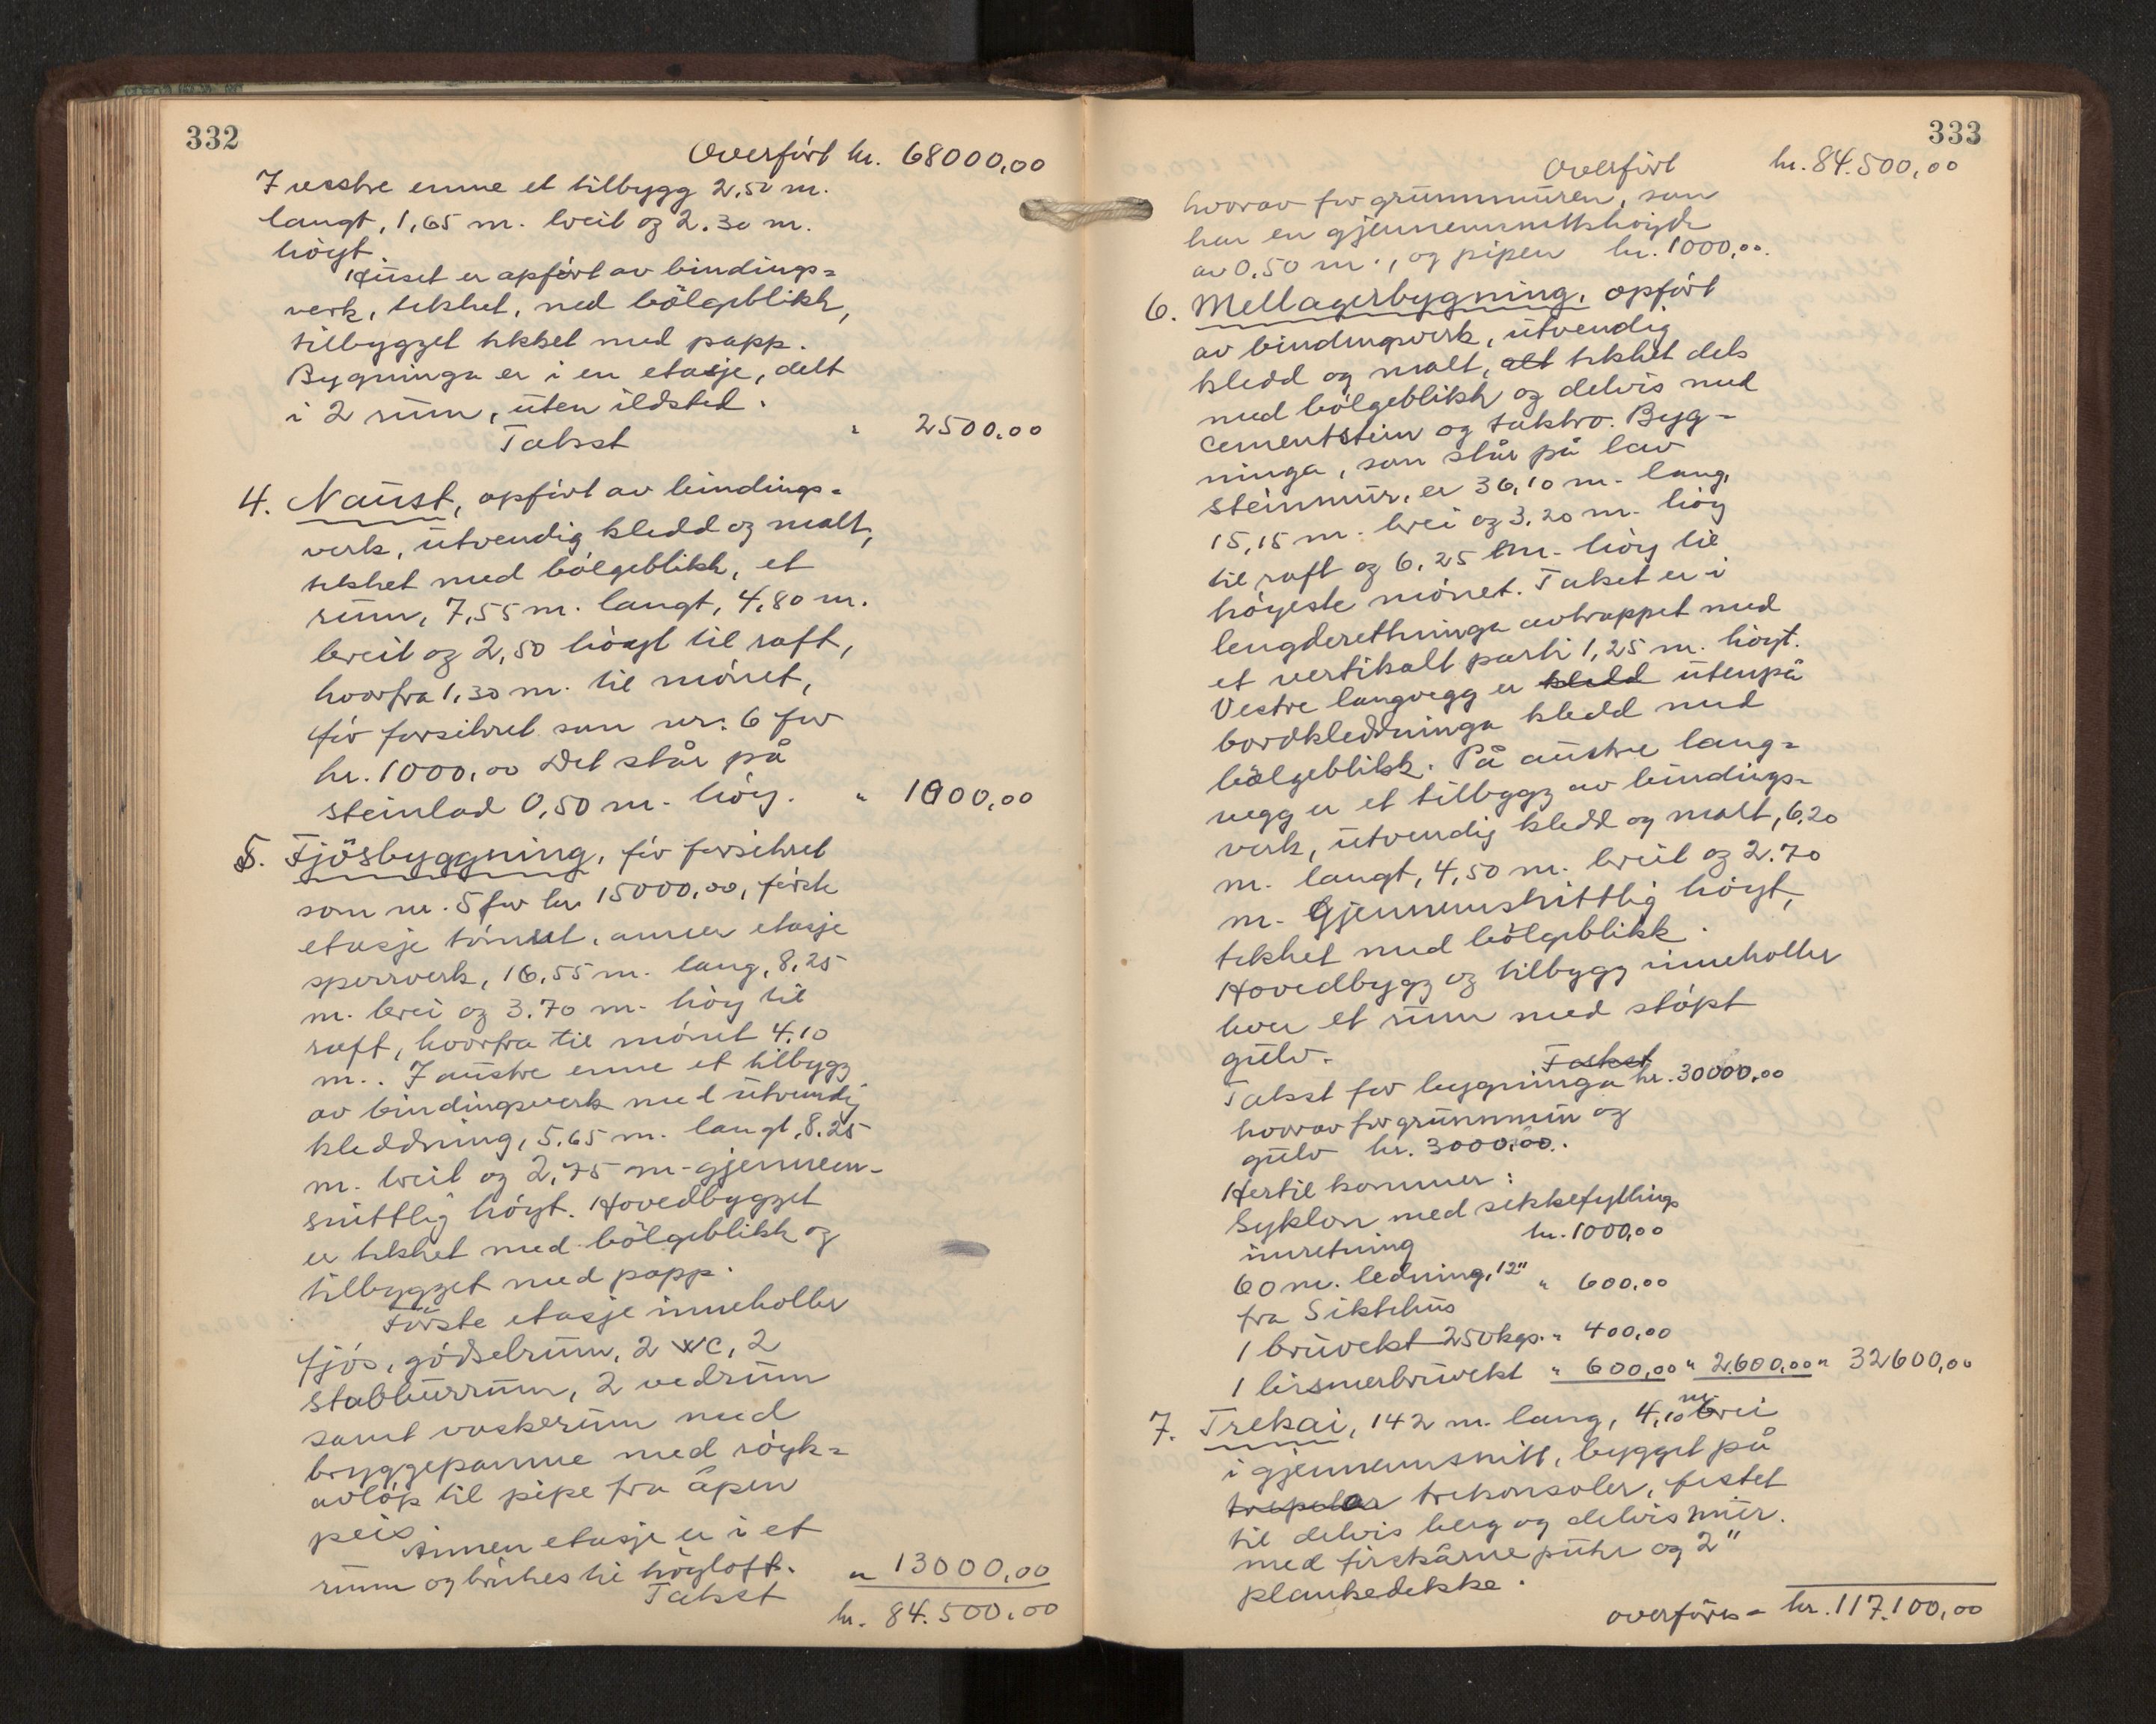 332
Overfört kr. 68000,00
I vestre enne et tilbygg 2,50 m.
langt, 1,65 m. breit og 2.30 m.
höyt.
Huset er opfört av bindings=
verk, tekket, med bölgeblikk,
tilbygget tekket med papp.
Bygninga er i en etasje, delt
i 2 rum, uten ildsted.
Takst " 2500,00
4. Naust, opfört av bindings=
verk, utvendig kledd og malt,
tekket med bölgeblikk, et
rum, 7,55 m. langt, 4,80 m.
breit og 2,50 höyt til raft,
hvorfra 1,30 m. til mönet,
för forsikret som nr. 6 for
kr. 1000,00 Det står på
steinlad 0,50 m. höy. " 1000,00
5. Fjösbyggning, för forsikret
som nr. 5 for kr. 15000,00, förste
etasje tömret, annen etasje
sperrverk, 16,55 m. lang, 8,25
m. brei og 3.70 m. höy til
raft, hvorfra til mönet 4,10
m.. I austre enne et tilbygg
av bindingsverk med utvendig
kleddning, 5,65 m. langt, 8,25
m. breit og 2,75 m. gjennem-
snittlig höyt. Hovedbygget
er tekket med bölgeblikk og
tilbygget med papp.
Förste etasje inneholler
fjös, gödselrum, 2 WC, 2
stabbursrum, 2 vedrum
samt vaskerum med
bryggepanne med röyk=
avlöp til pipe fra åpen
peis.
Annen etasje er i et
rum og brukes til höyloft.
Takst " 13000,00
kr. 84.500,00
333
Overfört kr. 84.500,00
hvorav for grunnmuren, som
har en gjennemsnittshöyde
av 0,50 m., og pipen kr. 1000,00.
6. Mellagerbygning, opfört
av bindingsverk, utvendig
kledd og malt, alt tekket dels
med bölgeblikk og delvis med
cementstein og taktro. Byg=
ninga, som står på lav
steinmur, er 36,10 m. lang,
15,15 m. brei og 3.20 m. höy
til raft og 6,25 m. höy til
höyeste mönet. Taket er i
lengderetninga avtrappet med
et vertikalt parti 1,25 m. höyt.
Vestre langvegg er kledd utenpå
bordkledninga kledd med
bölgeblikk. På austre lang=
vegg er et tilbygg av bindings=
verk, utvendig kledd og malt, 6,20
m. langt, 4,50 m. breit og 2.70
m. gjennemsnittlig höyt,
tekket med bölgeblikk.
Hovedbygg og tilbygg inneholler
hver et rum med stöpt
gulv.
Takst
Takst for bygninga kr. 30000,00
hvorav for grunnmur og
gulv kr. 3000,00.
Hertil kommer:
Syklon med sekkefyllings
innretning kr. 1000,00
60 m. ledning, 12" " 600,00
fra Siktehus
1 bruvekt 250 kgs. " 400,00
1 bismerbruvekt " 600,00 " 2.600,00 " 32600,00
7. Trekai, 142 m. lang, 4,10 m brei
i gjennemsnitt, bygget på
trepelar trekonsoler, festet
til delvis berg og delvis mur.
med firskårne puter og 2"
plankedekke.
overföres = kr. 117.100,00